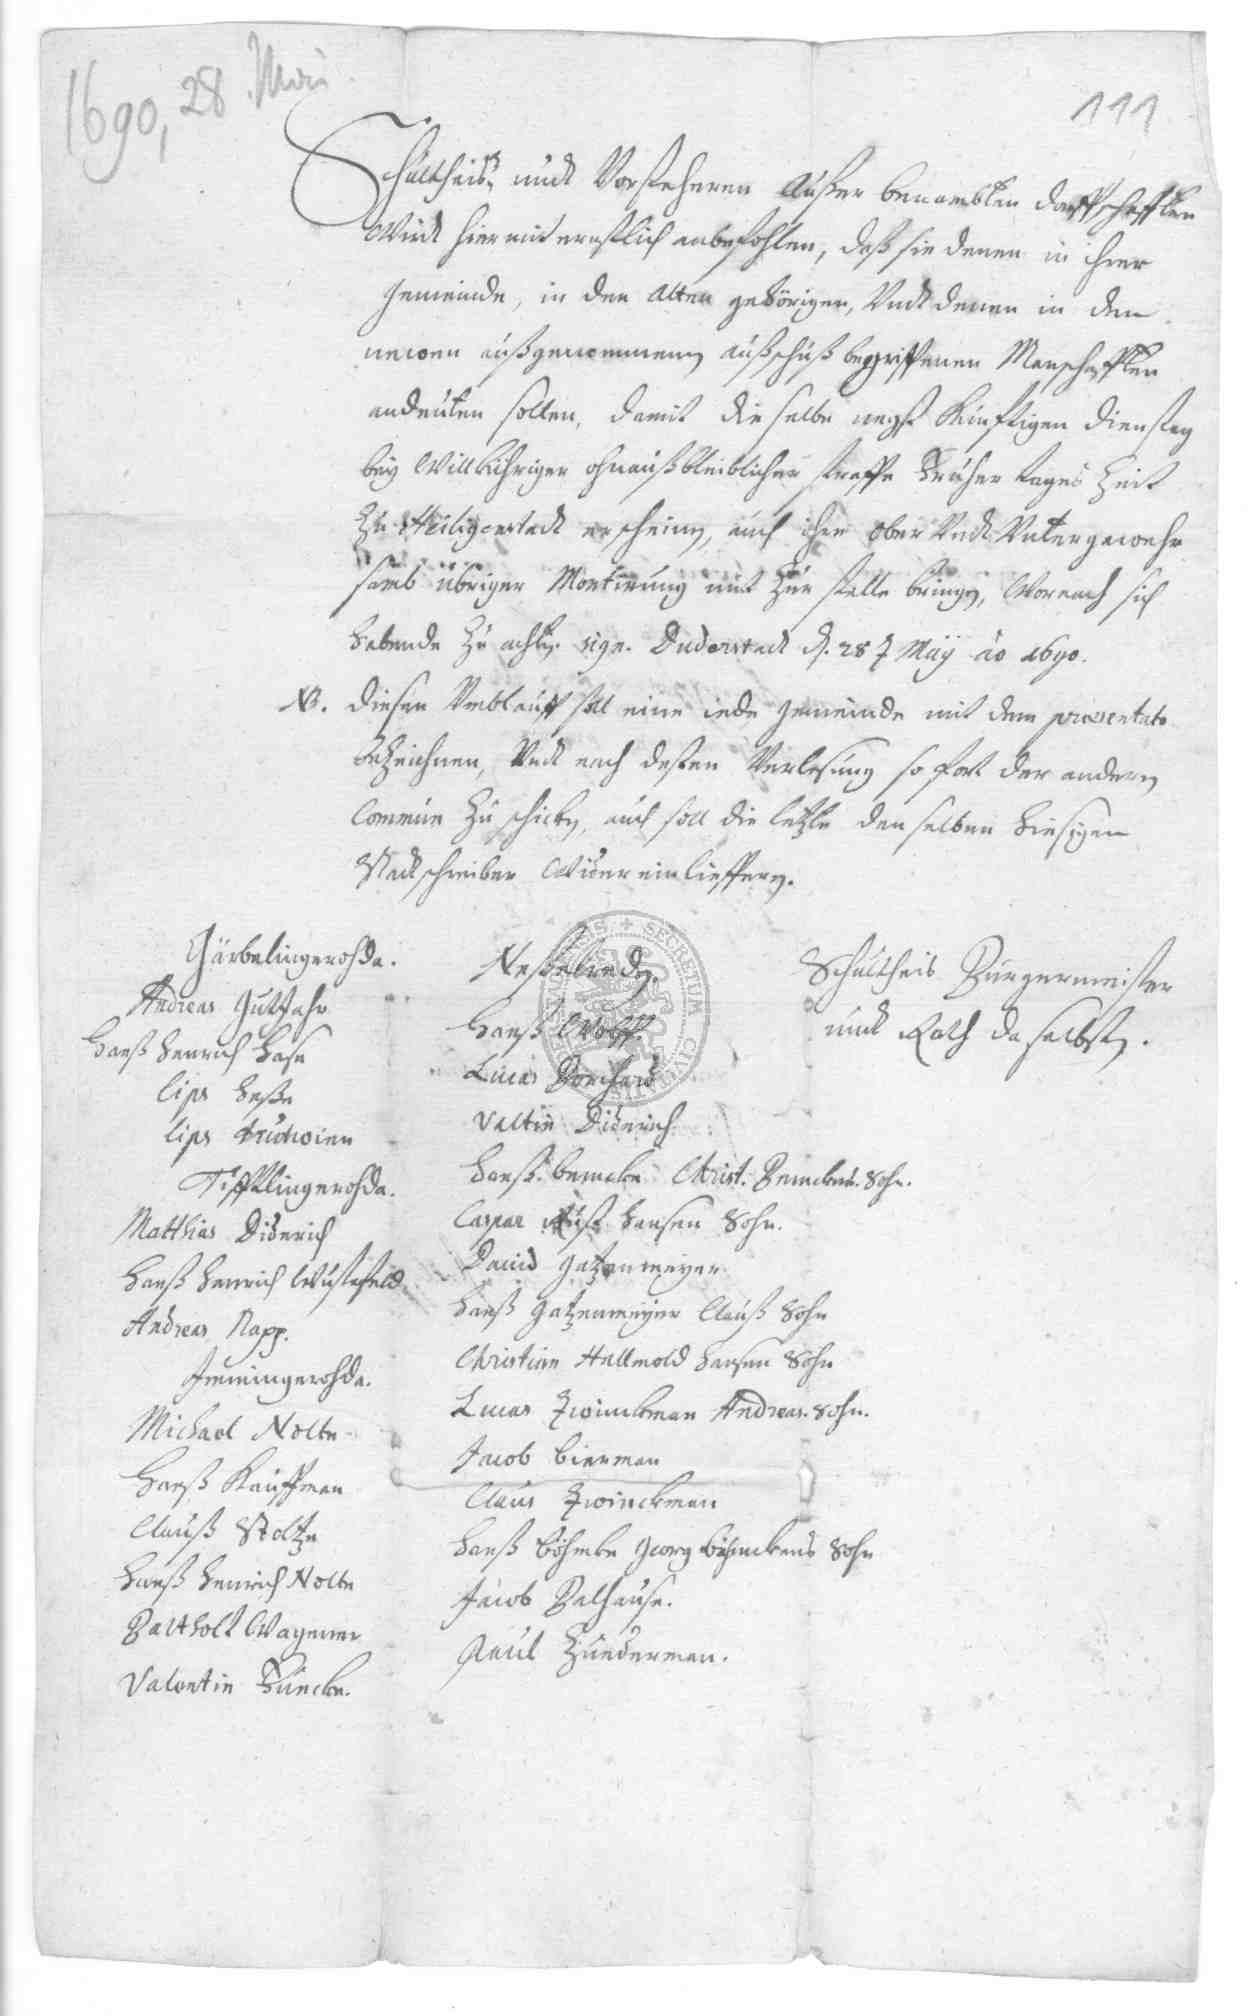 1690, 28. Mai
111
Schultheis undt Vorsteheren Unser benambten dorffschafften
Wirdt hiermit ernstlich anbefohlen, daß sie denen in ihrer
gemeinde, in den Alten gehörigen, Undt denen in dem
newen außgenommenen außschuß begriffenen Manschafften
andeuten sollen, damit dieselbe negst künftigen dienstag
bey Willkühriger ohnaußbleiblicher straffe früher tages Zeit
Zu Heiligenstadt erscheinen, auch ihre Ober Undt Untergewehr
samb übriger Montirung mit Zur stelle bringen, Wornach sich
habende Zu achten. sign. Duderstadt d. 28 t Maÿ ao 1690.
NB. diesen Umblauff soll eine iede gemeinde mit dem præsentato
bezeichnen, Undt nach deßen Verlesung so fort der andern
Commun Zu schicken, auch soll die letzte denselben hiesigen
Stadtschreiber Wieder einlieffern.
Gärbelingerohda.
Andreas Gutjahr
Hanß Henrich Hase
Lips Heße
Lips
Tifftlingerohda.
Matthias Diderich
Hanß Henrich Wustefeld
Andreas Rapp.
Immingerohda.
Michael Nolte
Hanß Kauffman
Clauß Stoltze
Hanß Henrich Nolte
Bartholt Wagener
Valentin Füncke.
Neßelreden.
Hanß Wolff
Lucas Borchard
Valtin Diderich
Hanß Bencke Christ. Benckens. Sohn.
Caspar Rust Hansen Sohn.
David Gatzenmeyer
Hanß Gatzenmeyer Clauß Sohn
Christian Hellmold Hansen Sohn
Lucas Zwinckman Andreas. Sohn.
Jacob Bierman
Claus Zwinckman
Hanß Böhmke Georg Böhmckens Sohn
Jacob Balhause.
Paul Hünderman.
Schultheis Bürgermeister
undt Rath daselbst.
SECRETUM CIVITATIS